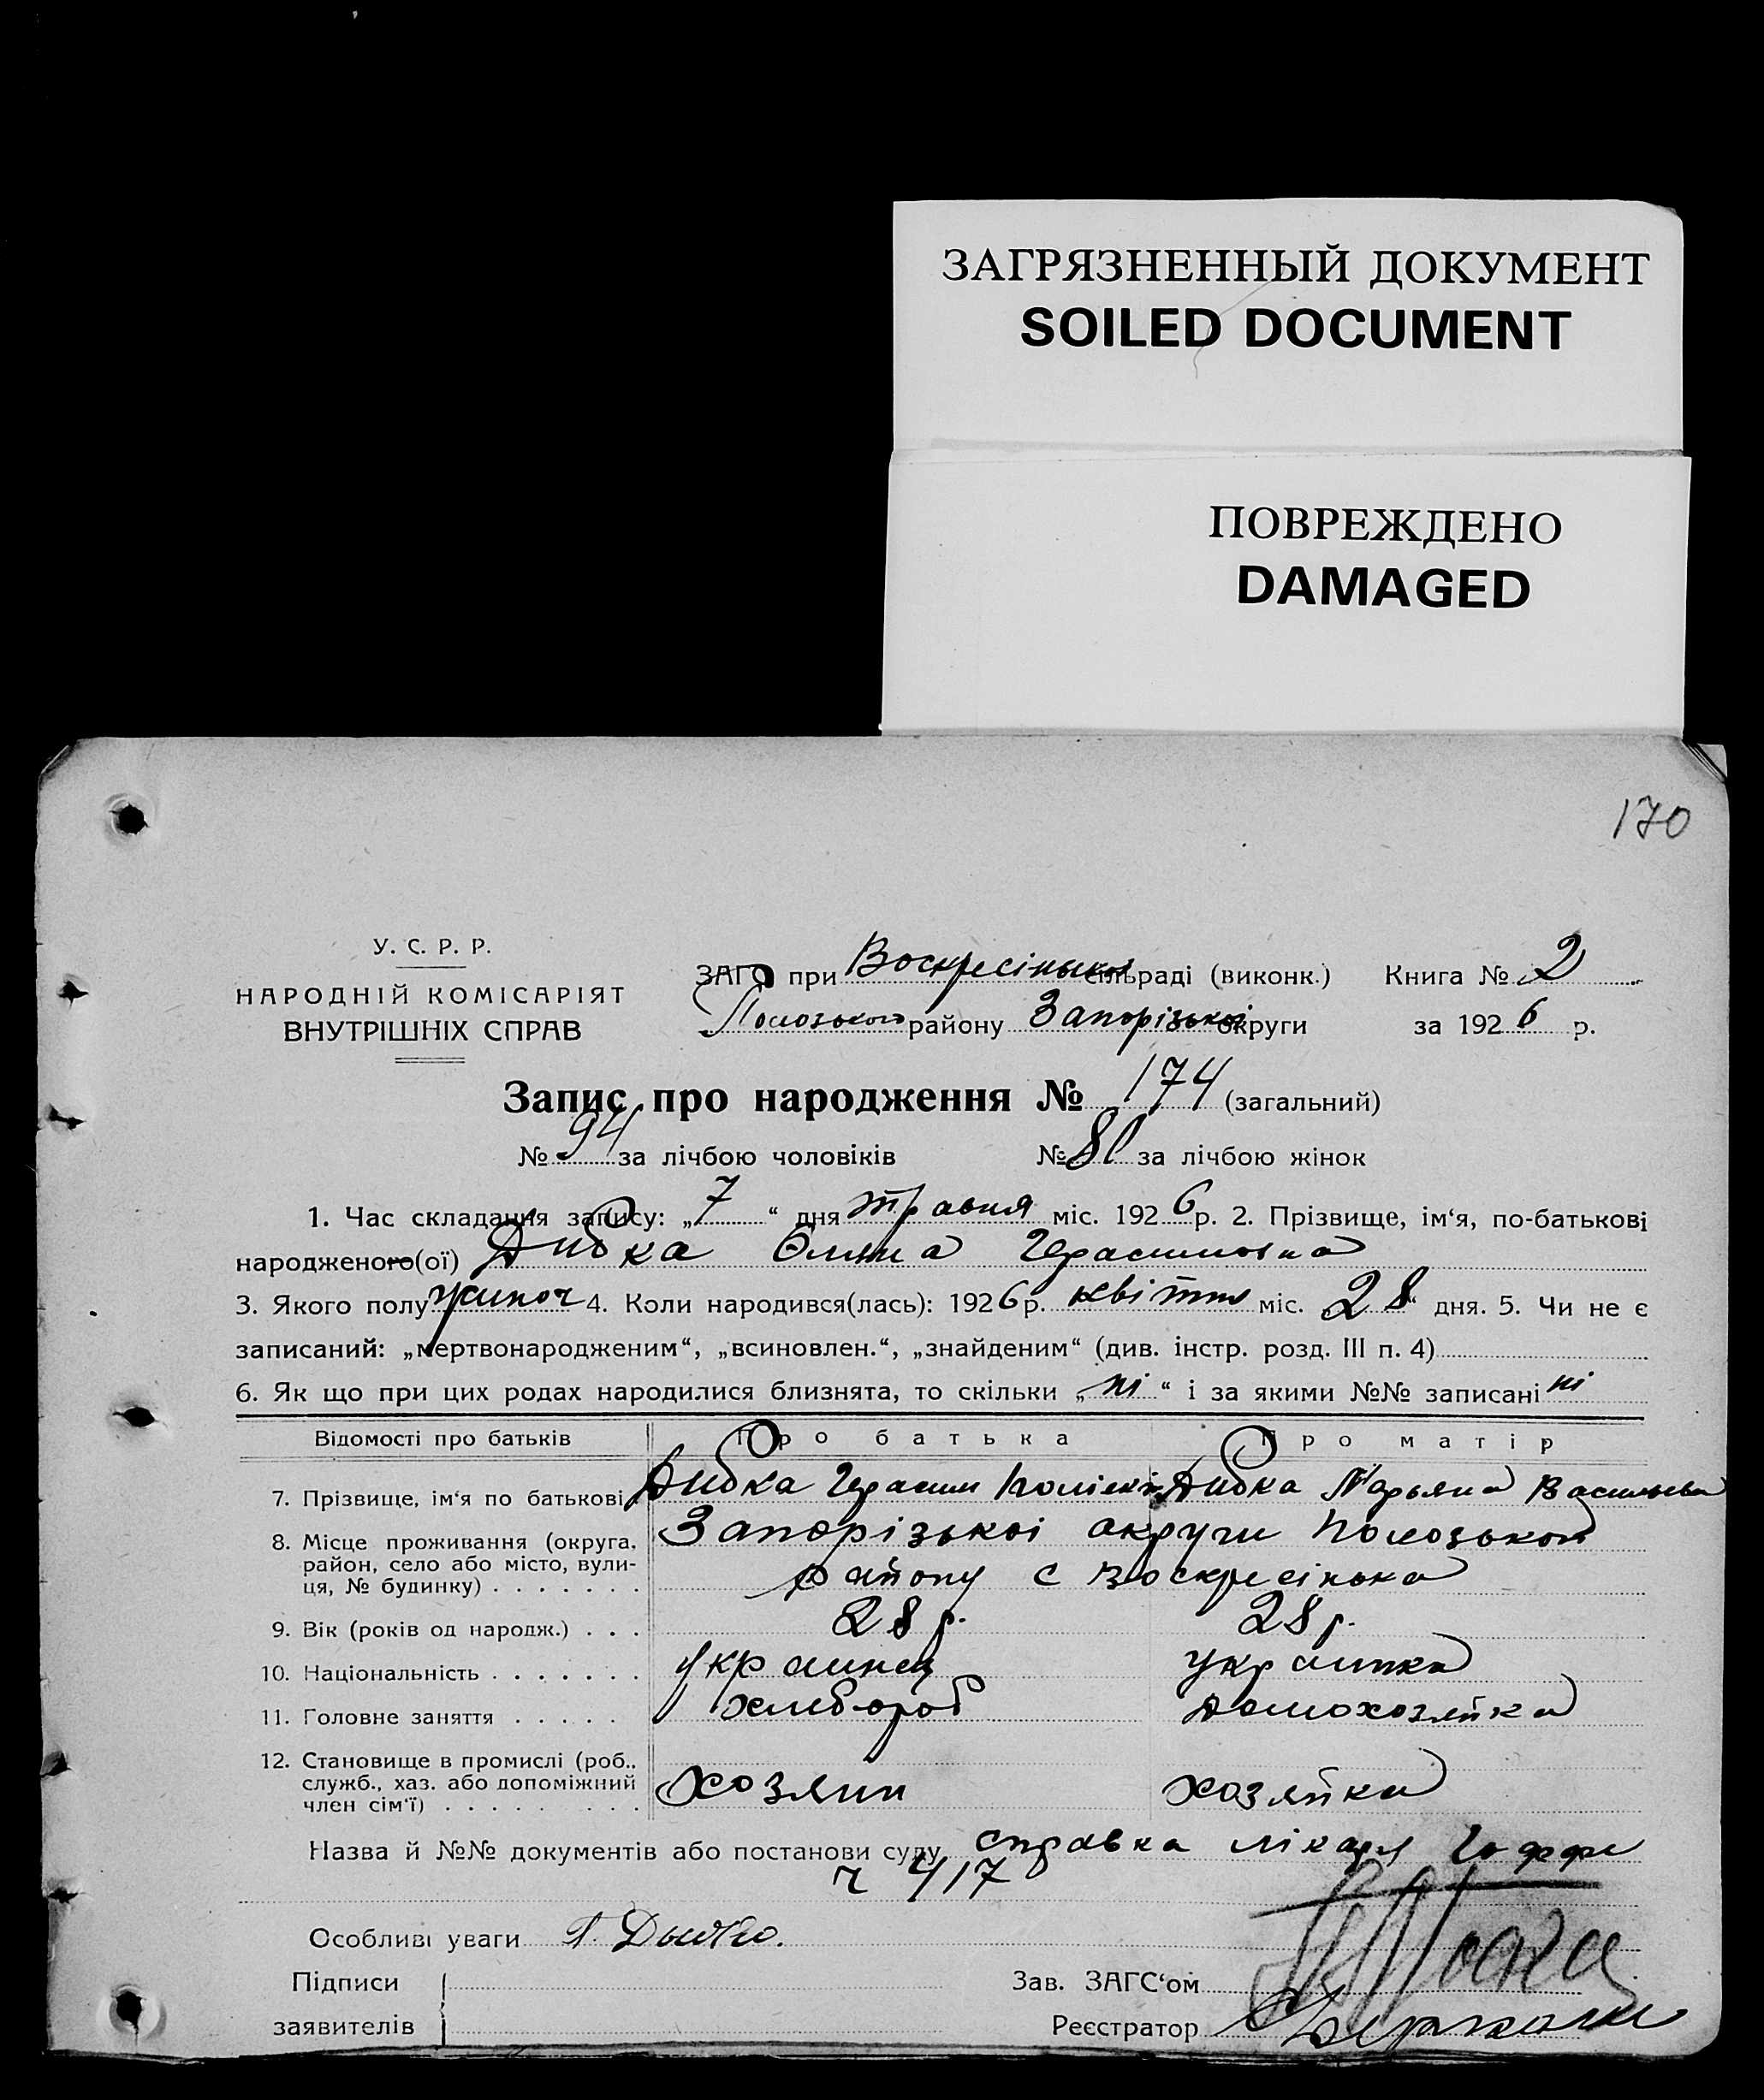 ЗАГРЯЗНЕННЫЙ ДОКУМЕНТ
SOILED DOCUMENT
ПОВРЕЖДЕНО
DAMAGED
170
У. С. Р. Р.
НАРОДНІЙ КОМІСАРІЯТ
ВНУТРІШНІХ СПРАВ
ЗАГС при Воскресінька сільраді (виконк.) Книга № 2
Полозького району Запорізької округи за 1926 р.
Запис про народження № 174 (загальний)
№ 94 за лічбою чоловіків № 80 за лічбою жінок
1. Час складання запису: „7“ дня травня міс. 1926 р. 2. Прізвище, ім‘я, по-батькові
народженого(ої) Дибка Герасимовна
3. Якого полу жиноч 4. Коли народився(лась): 1926 р. квітня міс. „28“ дня. 5. Чи не є
записаний: „мертвонародженим“, „всиновлен.“, „знайденим“ (див. інстр. розд. III п. 4)
6. Як що при цих родах народилися близнята, то скільки „ні“ і за якими №№ записані ні
Відомості про батьків Про батька Про матір
7. Прізвище, ім‘я по батькові Дибка Герасим Дибка Марьяна Васильева
8. Місце проживання (округа, район, село або місто, вулиця, № будинку) Запорізькоі округи Полозького
району с Воскресінька
9. Вік (років од народж.) 28 р. 28 р.
10. Національність украинец украинка
11. Головне заняття хлибороб домохозяйка
12. Становище в промислі (роб., служб., хаз. або допоміжний член сім‘ї) хозяин хозяйка
Назва й №№ документів або постанови суду справка лікаря
ч 417
Особливі уваги Г. Дыбко.
Підписи
заявителів
Зав. ЗАГС‘ом
Реєстратор